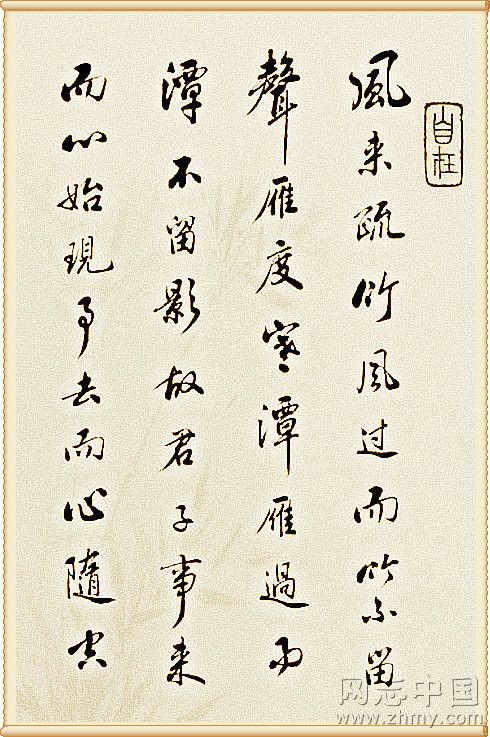 風来疏竹風过而竹不留
聲雁度寒潭雁過而
潭不留影故君子事来
而心始現事去而心隨空
自在
网志中国
www.zhmy.com